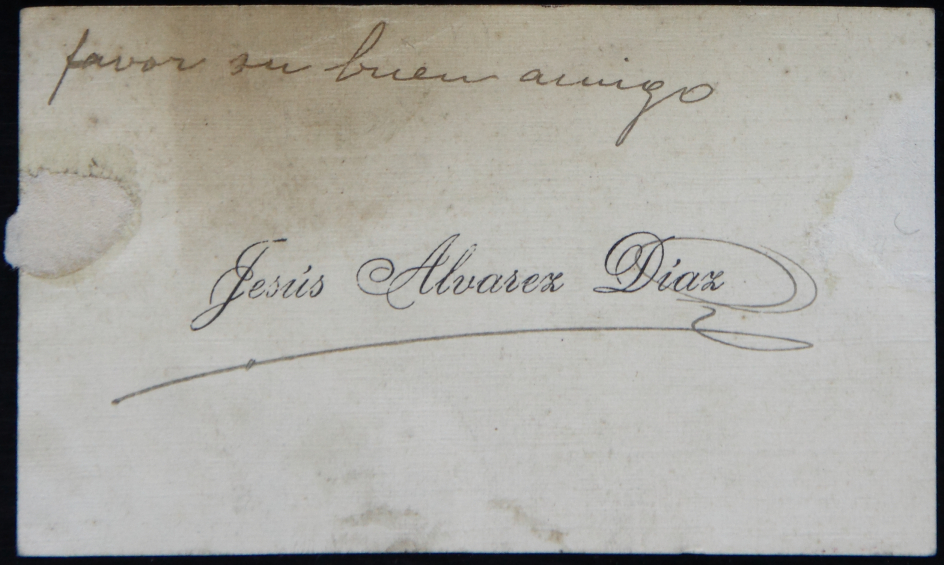 favor su buen amigo
Jesús Alvarez Díaz